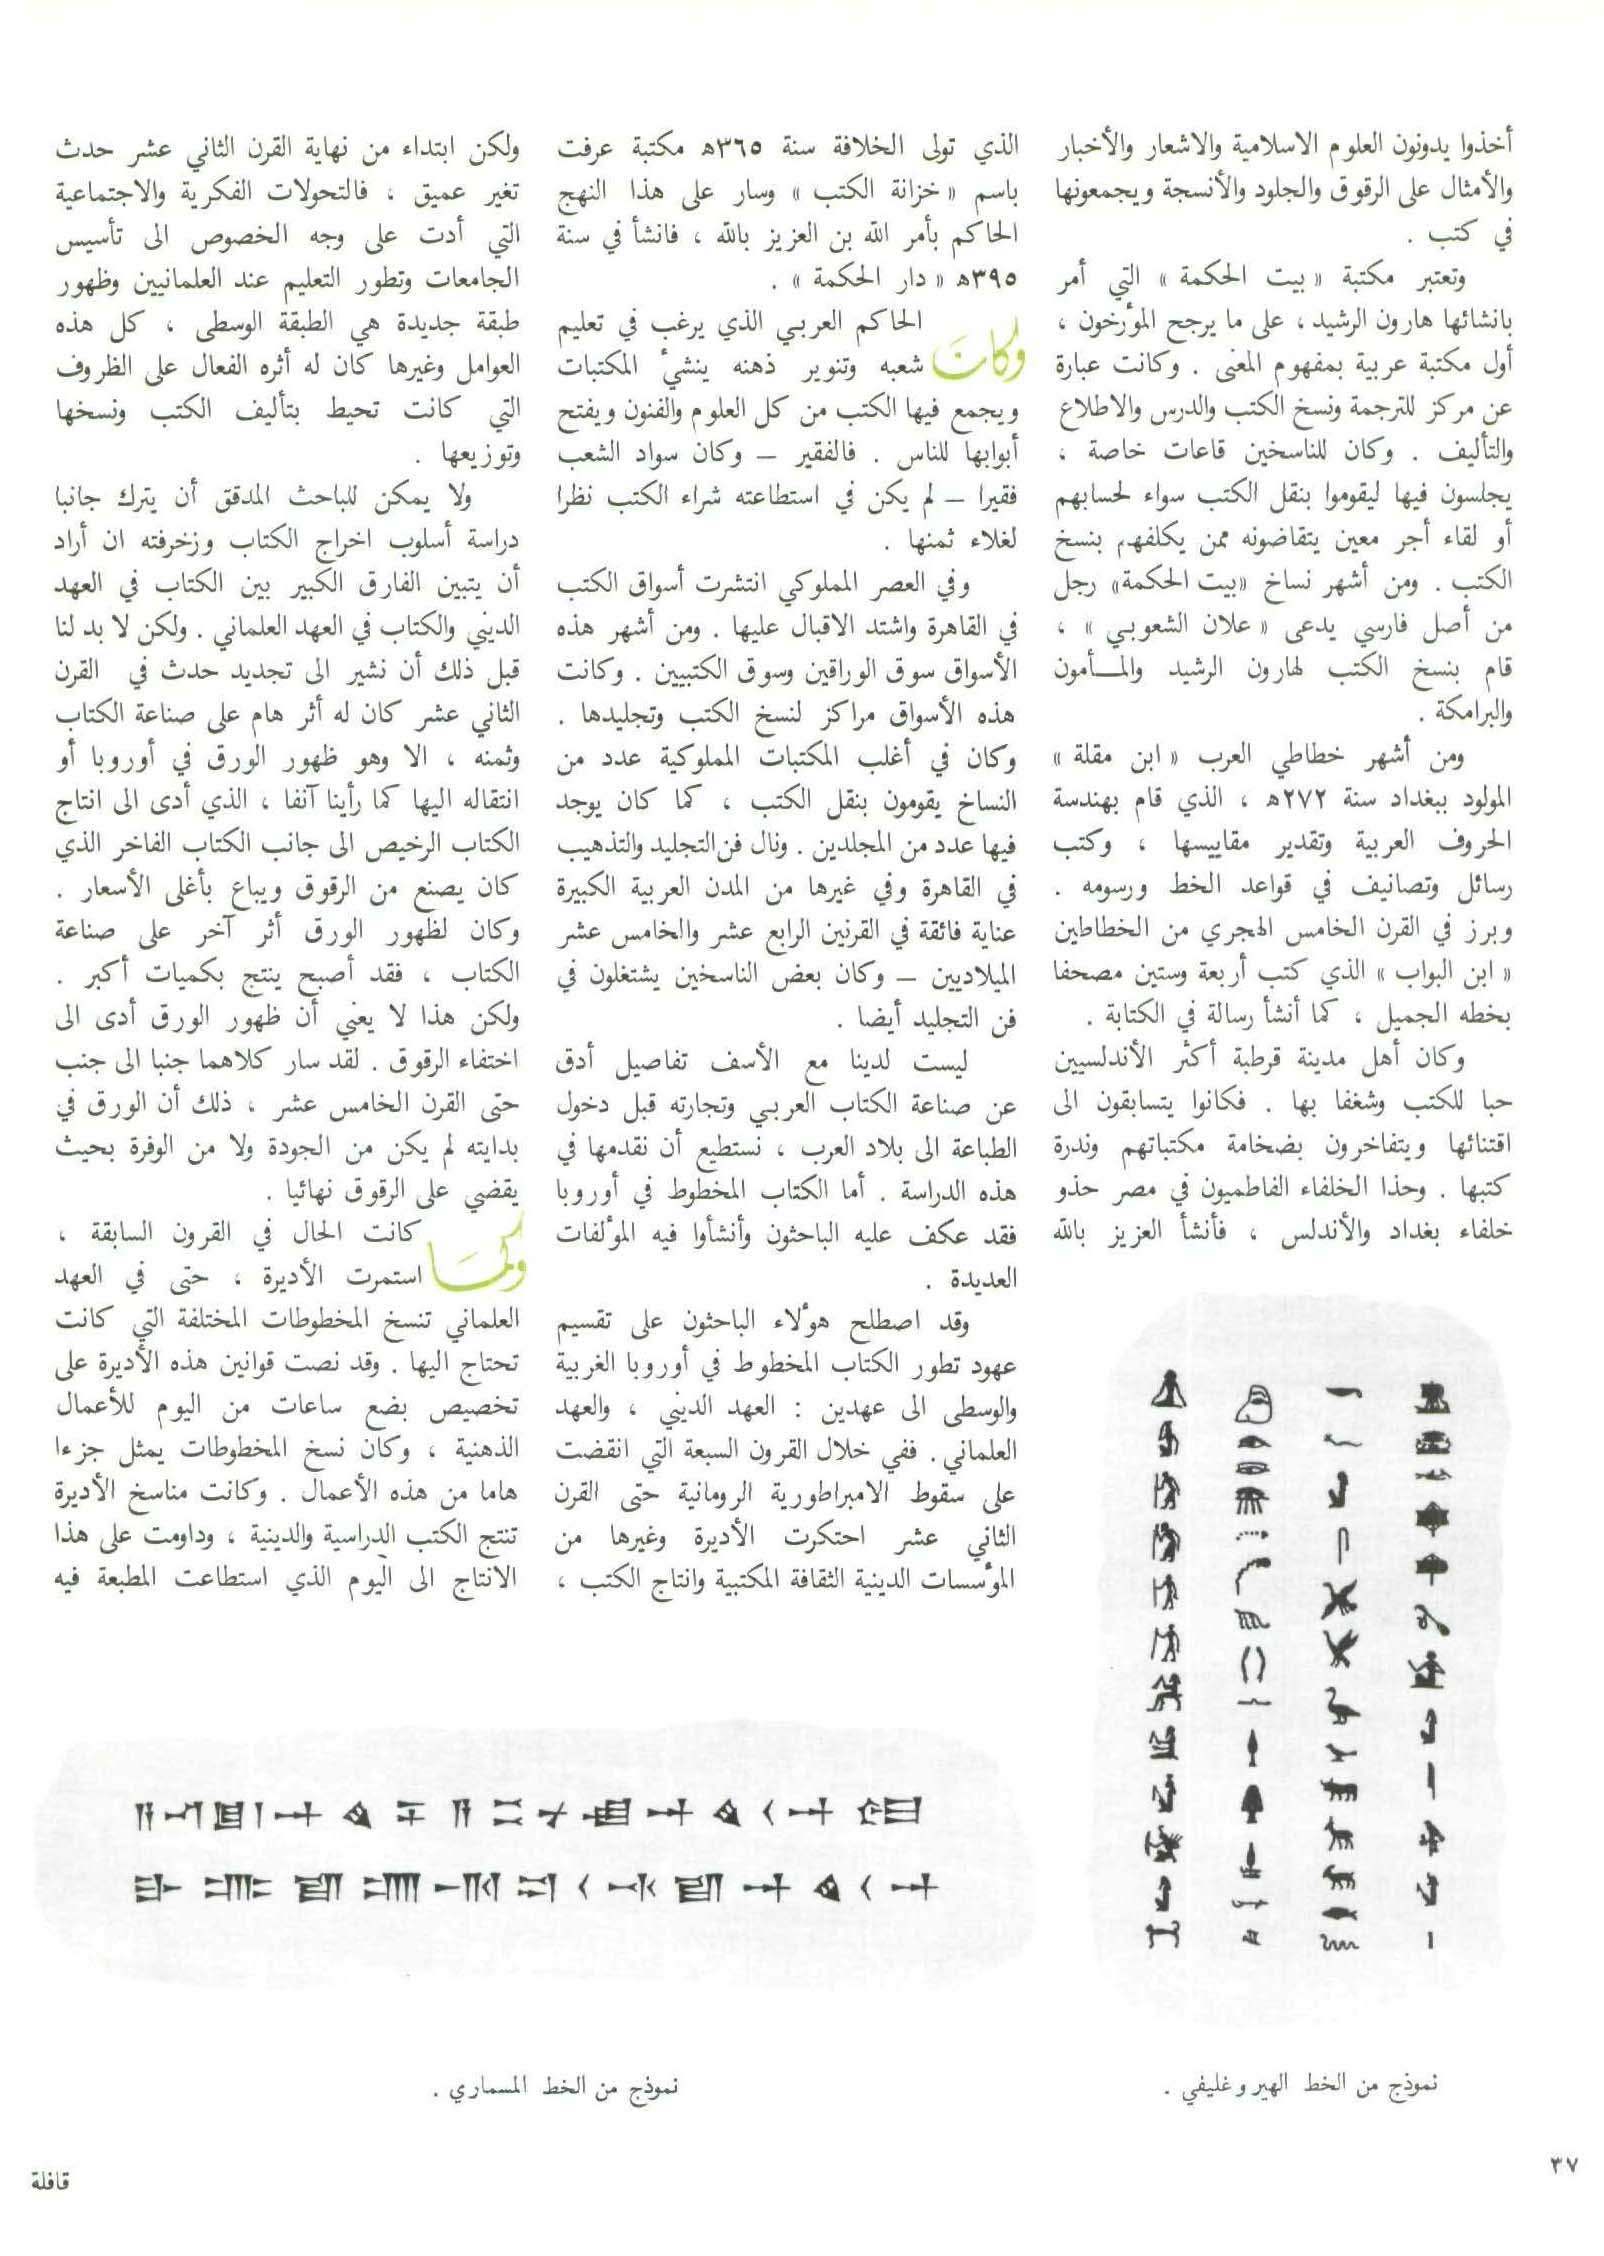 أخذوا يدونون العلوم الاسلامية والاشعار والأخبار
والأمثال على الرقوق والجلود والأنسجة ويجمعونها
في كتب .
وتعتبر مكتبة « بيت الحكمة » التي أمر
بانشائها هارون الرشيد ، على ما يرجح المؤرخون ،
أول مكتبة عربية بمفهوم المعنى . وكانت عبارة
عن مركز للترجمة ونسخ الكتب والدرس والاطلاع
والتأليف . وكان للناسخين قاعات خاصة ،
يجلسون فيها ليقوموا بنقل الكتب سواء لحسابهم
أو لقاء أجر معين يتقاضونه ممن يكلفهم بنسخ
الكتب . ومن أشهر نساخ «بيت الحكمة» رجل
من أصل فارسي يدعى « علان الشعوبي » ،
قام بنسخ الكتب لهارون الرشيد والمـأمون
والبرامكة .
ومن أشهر خطاطي العرب « ابن مقلة »
المولود ببغداد سنة ٢٧٢ه ، الذي قام بهندسة
الحروف العربية وتقدير مقاييسها ، وكتب
رسائل وتصانيف في قواعد الخط ورسومه .
وبرز في القرن الخامس الهجري من الخطاطين
« ابن البواب » الذي كتب أربعة وستين مصحفا
بخطه الجميل ، كما أنشأ رسالة في الكتابة .
وكان أهل مدينة قرطبة أكثر الأندلسيين
حبا للكتب وشغفا بها . فكانوا يتسابقون الى
اقتنائها ويتفاخرون بضخامة مكتباتهم وندرة
كتبها . وحذا الخلفاء الفاطميون في مصر حذو
خلفاء بغداد والأندلس ، فأنشأ العزيز بالله
الذي تولى الخلافة سنة ٣٦٥ه مكتبة عرفت
باسم « خزانة الكتب » وسار على هذا النهج
الحاكم بأمر الله بن العزيز بالله ، فانشأ في سنة
٣٩٥ه « دار الحكمة » .
وكان الحاكم العربي الذي يرغب في تعليم
شعبه وتنوير ذهنه ينشيء المكتبات
ويجمع فيها الكتب من كل العلوم والفنون ويفتح
أبوابها للناس . فالفقير — وكان سواد الشعب
فقيرا — لم يكن في استطاعته شراء الكتب نظرا
لغلاء ثمنها .
وفي العصر المملوكي انتشرت أسواق الكتب
في القاهرة واشتد الاقبال عليها . ومن أشهر هذه
الأسواق سوق الوراقين وسوق الكتبيين . وكانت
هذه الأسواق مراكز لنسخ الكتب وتجليدها .
وكان في أغلب المكتبات المملوكية عدد من
النساخ يقومون بنقل الكتب ، كما كان يوجد
فيها عدد من المجلدين . ونال فن التجليد والتذهيب
في القاهرة وفي غيرها من المدن العربية الكبيرة
عناية فائقة في القرنين الرابع عشر والخامس عشر
الميلاديين — وكان بعض الناسخين يشتغلون في
فن التجليد أيضا .
ليست لدينا مع الأسف تفاصيل أدق
عن صناعة الكتاب العربي وتجارته قبل دخول
الطباعة الى بلاد العرب ، نستطيع أن نقدمها في
هذه الدراسة . أما الكتاب المخطوط في أوروبا
فقد عكف عليه الباحثون وأنشأوا فيه المؤلفات
العديدة .
وقد اصطلح هؤلاء الباحثون على تقسيم
عهود تطور الكتاب المخطوط في أوروبا الغربية
والوسطى الى عهدين : العهد الديني ، والعهد
العلماني . ففي خلال القرون السبعة التي انقضت
على سقوط الامبراطورية الرومانية حتى القرن
الثاني عشر احتكرت الأديرة وغيرها من
المؤسسات الدينية الثقافة المكتبية وانتاج الكتب ،
ولكن ابتداء من نهاية القرن الثاني عشر حدث
تغير عميق ، فالتحولات الفكرية والاجتماعية
التي أدت على وجه الخصوص الى تأسيس
الجامعات وتطور التعليم عند العلمانيين وظهور
طبقة جديدة هي الطبقة الوسطى ، كل هذه
العوامل وغيرها كان له أثره الفعال على الظروف
التي كانت تحيط بتأليف الكتب ونسخها
وتوزيعها .
ولا يمكن للباحث المدقق أن يترك جانبا
دراسة أسلوب اخراج الكتاب وزخرفته ان أراد
أن يتبين الفارق الكبير بين الكتاب في العهد
الديني والكتاب في العهد العلماني . ولكن لا بد لنا
قبل ذلك أن نشير الى تجديد حدث في القرن
الثاني عشر كان له أثر هام على صناعة الكتاب
وثمنه ، الا وهو ظهور الورق في أوروبا أو
انتقاله اليها كما رأينا آنفا ، الذي أدى الى انتاج
الكتاب الرخيص الى جانب الكتاب الفاخر الذي
كان يصنع من الرقوق ويباع بأغلى الأسعار .
وكان لظهور الورق أثر آخر على صناعة
الكتاب ، فقد أصبح ينتج بكميات أكبر .
ولكن هذا لا يعني أن ظهور الورق أدى الى
اختفاء الرقوق . لقد سار كلاهما جنبا الى جنب
حتى القرن الخامس عشر ، ذلك أن الورق في
بدايته لم يكن من الجودة ولا من الوفرة بحيث
يقضي على الرقوق نهائيا .
وكما كانت الحال في القرون السابقة ،
استمرت الأديرة ، حتى في العهد
العلماني تنسخ المخطوطات المختلفة التي كانت
تحتاج اليها . وقد نصت قوانين هذه الأديرة على
تخصيص بضع ساعات من اليوم للأعمال
الذهنية ، وكان نسخ المخطوطات يمثل جزءا
هاما من هذه الأعمال . وكانت مناسخ الأديرة
تنتج الكتب الدراسية والدينية ، وداومت على هذا
الانتاج الى اليوم الذي استطاعت المطبعة فيه
نموذج من الخط الهيروغليفي .
نموذج من الخط المسماري .
٣٧
قافلة